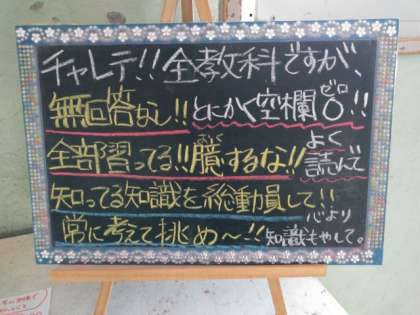 チャレテ!!全教科ですが、
無回答なし!!とにかく空欄ゼロ!!
全部習ってる!!臆するな!!よく読んで
知ってる知識を総動員して!!心より
常に考えて挑め〜!!知識もやして。